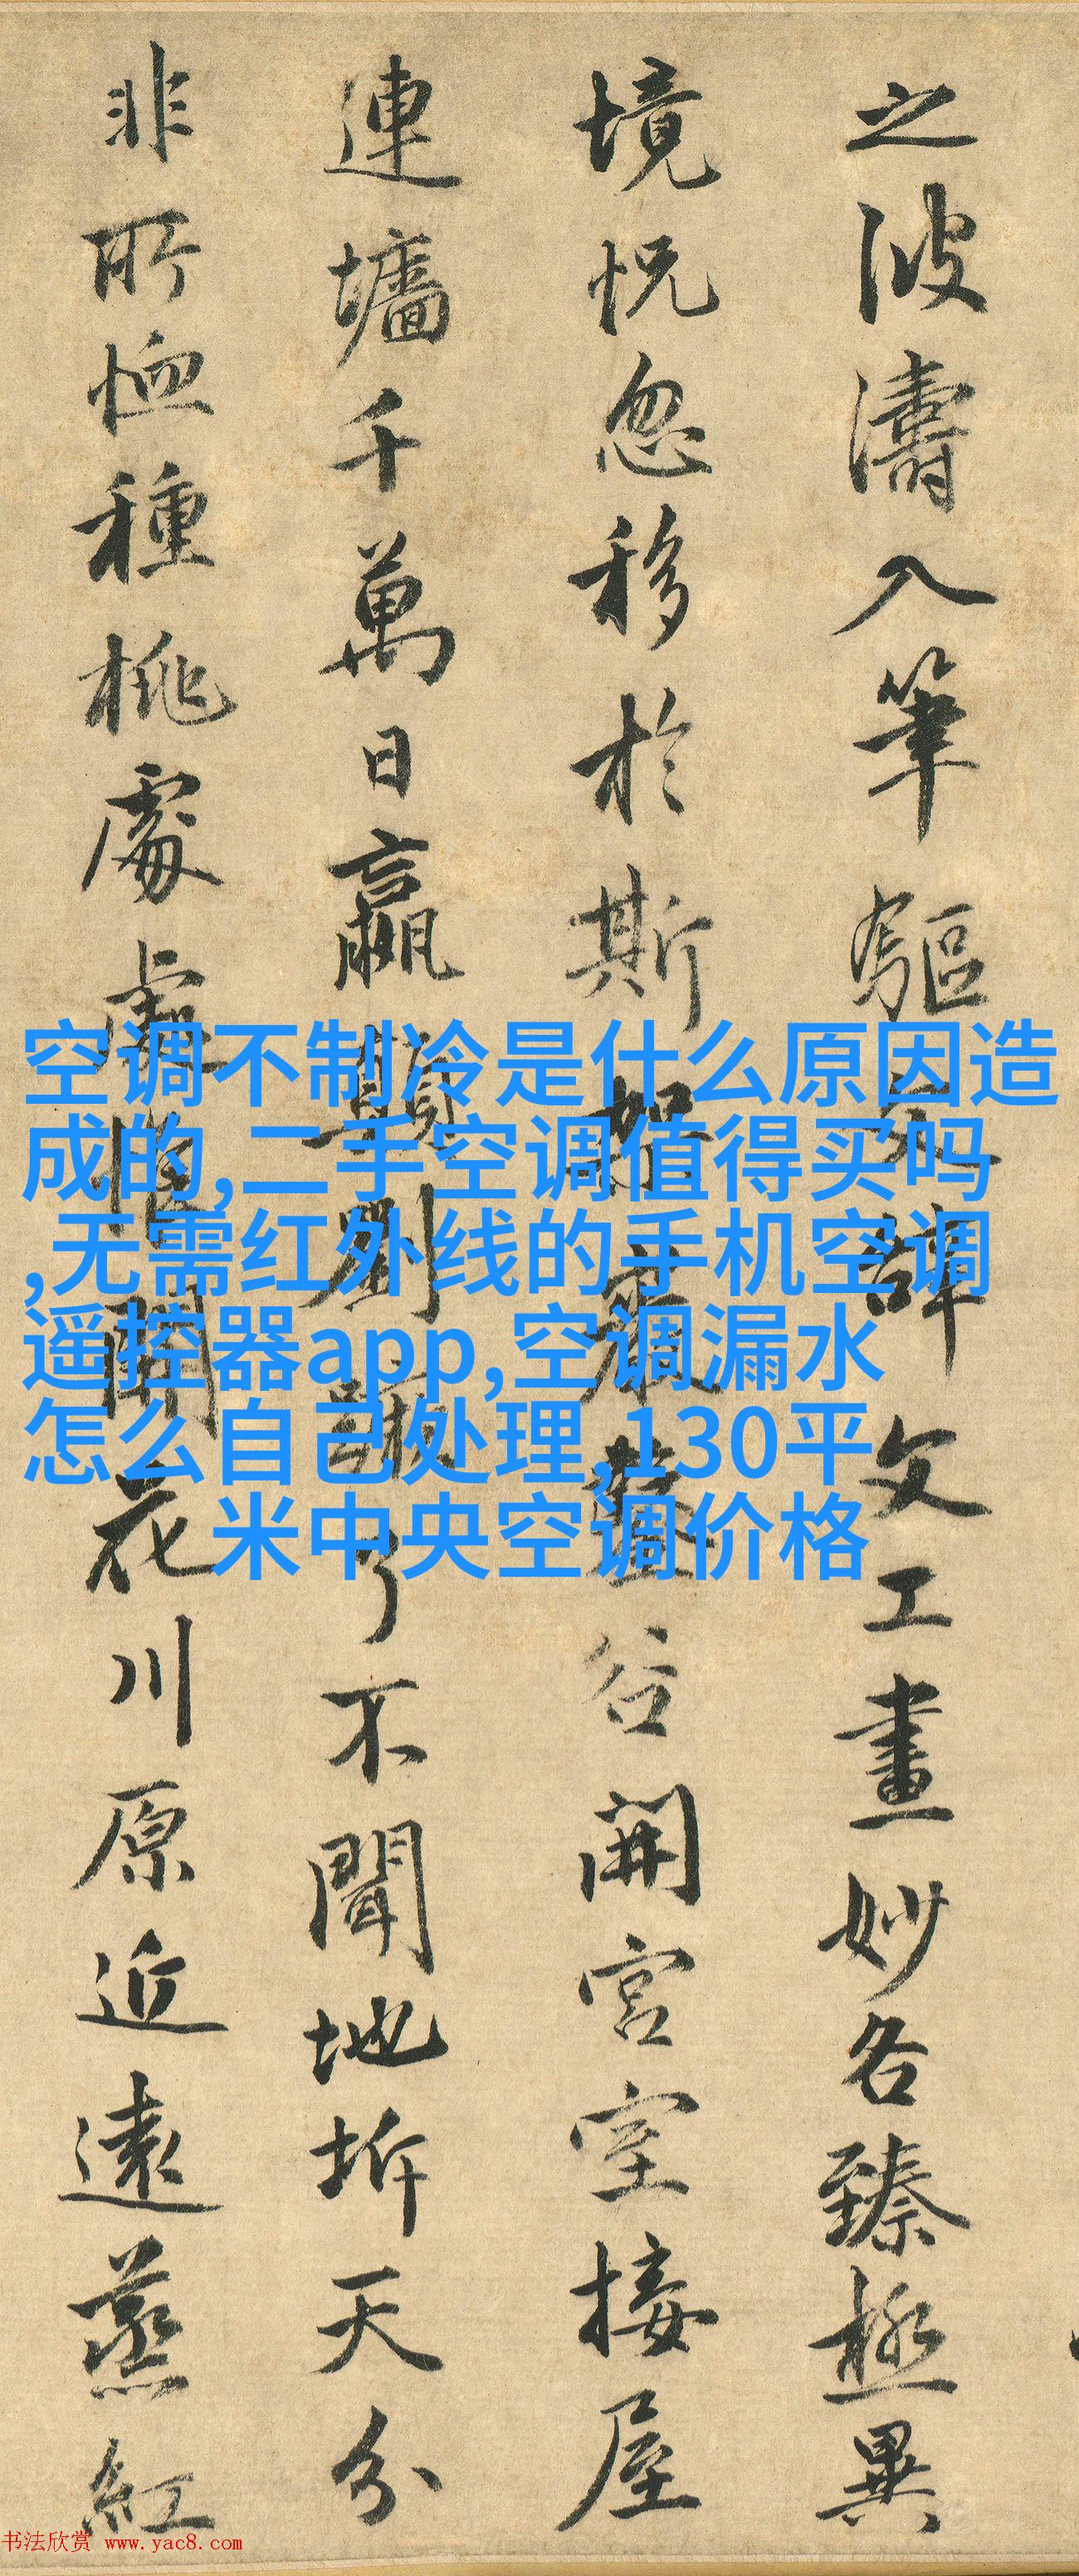 之波濤入筆驅文辭文工畫妙各臻極異
境恍忽移於斯架巖鑿谷開宮室接屋
連墻千萬日嬴顛劉蹶了不聞地坼天分
非所恤種桃處處惟開花川原近遠蒸紅
空调不制冷是什么原因造
成的,二手空调值得买吗
,无需红外线的手机空调
遥控器app,空调漏水
怎么自己处理,130平
米中央空调价格
书法欣赏 www.yac8.com